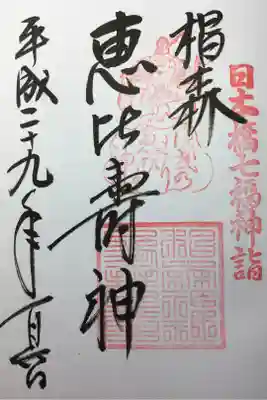 日本橋七福神詣
椙森
恵比寿神
平成二十九年一月